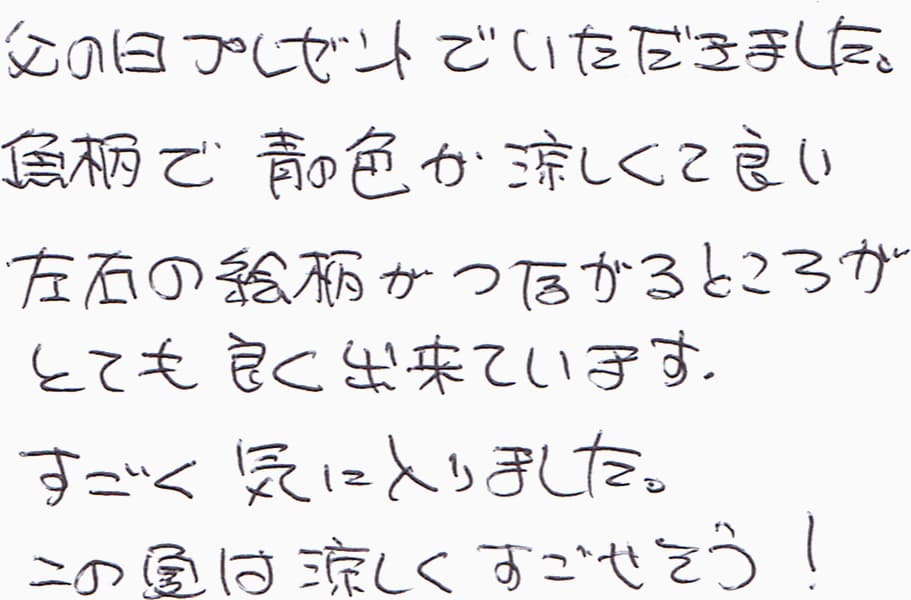 父の日プレゼントでいただきました。
魚柄で 青の色が涼しくて良い
左右の絵柄がつながるところが
とても良く出来ています.
すごく気に入りました。
この夏は涼しくすごせそう!